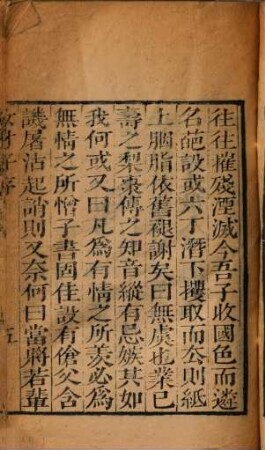 往往摧殘湮滅今吾子收國色而遴
名葩設或六丁潛下攫取而去則紙
上胭脂依舊褪謝矣曰無虞也業已
壽之梨棗傳之知音縱有忌嫉其如
我何或又曰凡為有情之所羨必為
無情之所憎子書固佳設有傖父含
譏屠沽起誚則又奈何曰當將若輩